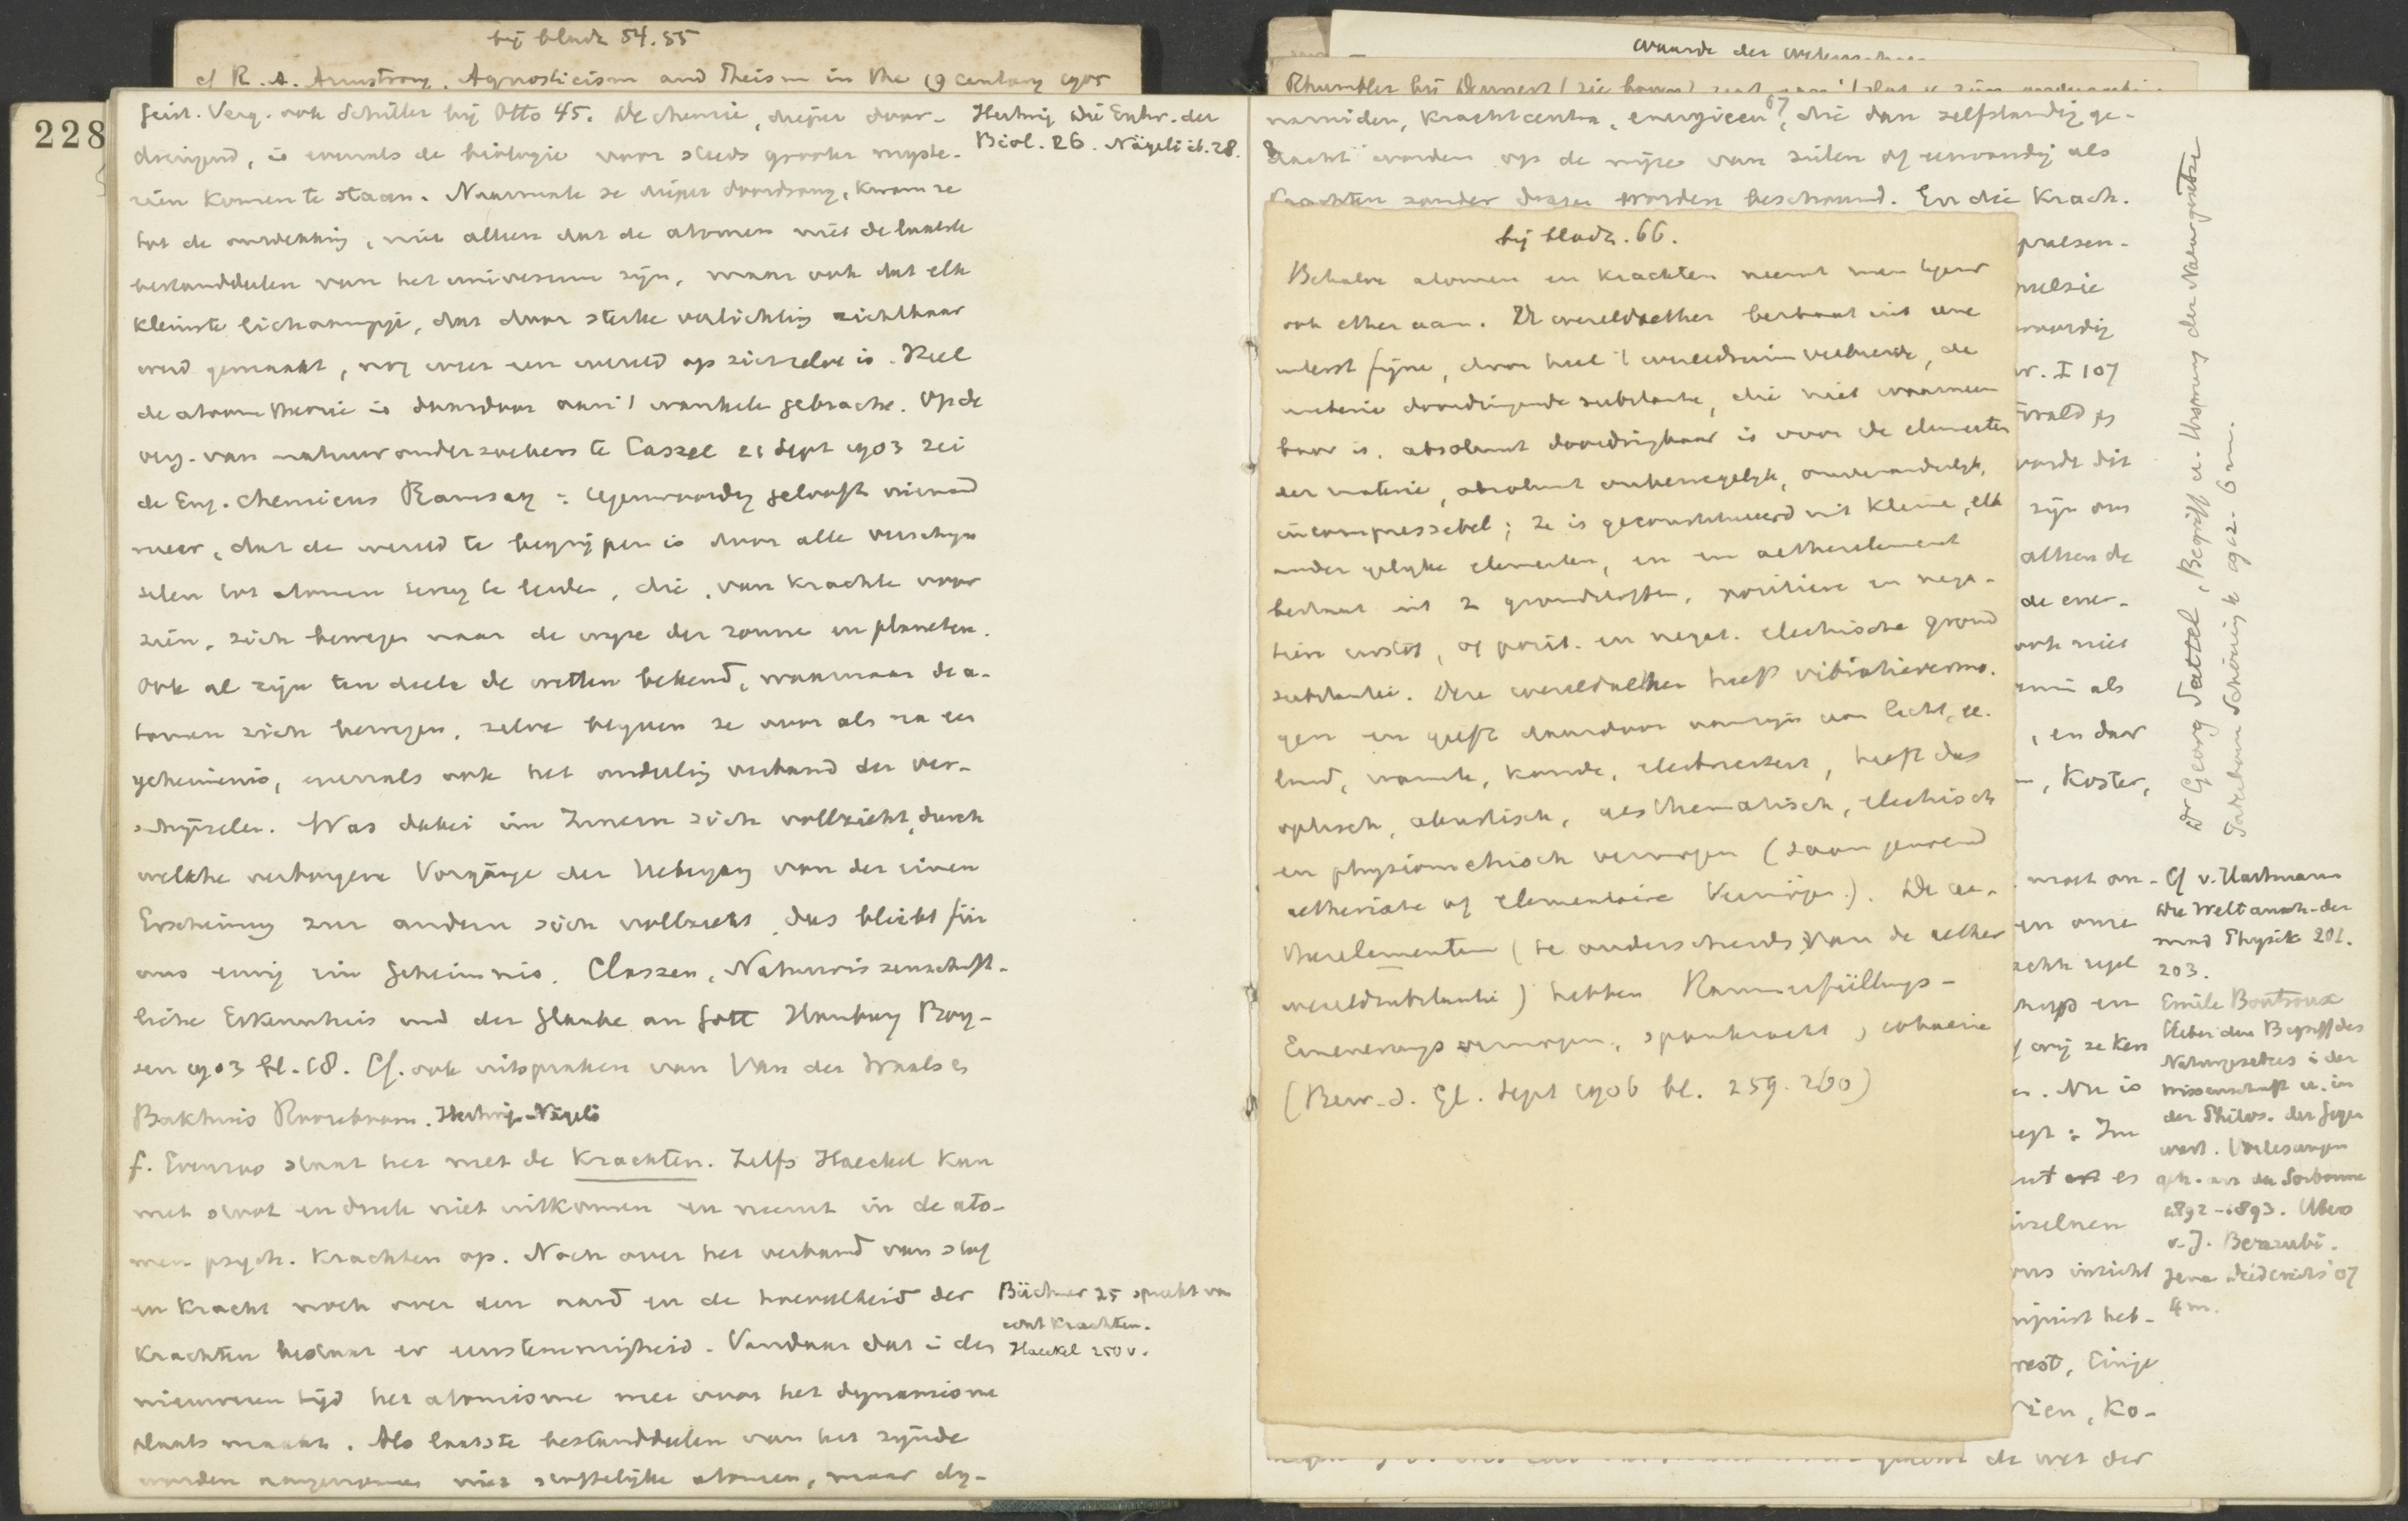 bij bladz 54.55
cf R. A. Armstrong. Agnosticism and Theism in the 19 century 1905
228
Geist. Verg. ook Schiller bij Otto 45. De chemie, dieper door-
dringend, is evenals de biologie voor steeds grooter myste-
riën komen te staan. Naarmate ze dieper doordrong, kwam ze
tot de ontdekking, niet alleen dat de atomen niet de laatste
bestanddeelen van het universum zijn, maar ook dat elk
kleinste lichaampje, dat door sterke verlichting zichtbaar
werd gemaakt, nog weer een wereld op zichzelve is. Heel
de atoomtheorie is daardoor aan 't wankelen gebracht. Op de
verg. van natuuronderzoekers te Cassel 21 Sept 1903 zei
de Eng. chemicus Ramsay: tegenwoordig gelooft niemand
meer, dat de wereld te begrijpen is door alle verschijn
selen tot atomen terug te leiden, die, van krachten voor
zien, zich bewegen naar de wijze der zonne en planeten.
Ook al zijn ten deele de wetten bekend, waarnaar de a-
tomen zich bewegen, zelve blijven ze voor als na een
geheimenis, evenals ook het onderling verband der ver-
schijnselen. Was dabei im Innern sich vollzieht, durch
welche verborgene Vorgänge der Uebergang von der einen
Erscheinung zur andern sich vollzieht, das bleibt für
uns ewig ein Geheimnis. Classen, Naturwissenschaft-
liche Erkenntnis und der Glaube an Gott Hamburg Boy-
sen 1903 bl. 18. Cf. ook uitspraken van Van der Waals &
Bakhuis Roozeboom. Hertwig-Nägeli
f. Evenzoo staat het met de krachten. Zelfs Haeckel kan
met stoot en druk niet uitkomen en neemt in de ato-
men psych. krachten op. Noch over het verband van stof
en kracht noch over den aard en de hoeveelheid der
krachten bestaat er eenstemmigheid. Vandaar dat in den
nieuweren tijd het atomisme mee voor het dynamisme
plaats maakt. Als laatste bestanddeelen van het zijnde
worden aangenomen niet stoffelijke atomen, maar dy-
Hertwig Die Entw. der
Biol. 26. Nägeli ib. 28.
Büchner 25 spreekt van
acht krachten.
Haeckel 250 v.
waarde der
Rhumbler bij Dennert (zie boven)
67
namiden, krachtcentra, energieën, die dan zelfstandig ge-
dacht worden op de wijze van zielen of eenvoudig als
krachten zonder drager worden beschouwd. En die krach-
bij bladz. 66.
Behalve atomen en krachten neemt men tegenw
ook ether aan. De wereldaether bestaat uit eene
uiterst fijne, door heel 't wereldruim verbreide, de
materie doordringende substantie, die niet waarneem
baar is, absoluut doordringbaar is voor de elementen
der materie, absoluut onbewegelijk, onveranderlijk,
incompressebel; ze is geconstitueerd uit kleine, elk
ander gelijke elementen, en een aetherelement
bestaat uit 2 grondstoffen, positieve en nega-
tieve
, of posit. en negat. electrische grond
substantie. Deze wereldaether heeft vibratievermo.
gen en geeft daardoor aanzijn aan licht, ge.
luid, warmte, koude, electriciteit, heeft dus
optisch, akustisch, aesthematisch, electrisch
en physiomchisch vermogen (zoogenaamd
aetherische of elementaire Vermögen). De ae-
therelementen (te onderscheiden van de aether
wereldsubstantie) hebben Raumerfüllungs-
Erneuerungsvermogen, spankracht, cohaesie
(Bew. d. Gl. Sept 1906 bl. 259. 260)
praesen-
pulsie
waardig
w. I 107
twald &
zijn ons
alleen de
de ener-
ook niet
als
, en dat
, Koster,
moet on-
en onze
en
ze ken
. Nu is
: Im
es
inzelnen
ons inricht
heb-
rest, Einige
, Ko-
de wet der
Dr Georg Sattel, Begriff u. Ursprung der Naturgesetze
Paderborn Schöningh 1912. 6 m.
Cf v. Hartmann
Die Weltansch. der
mod Physik 201.
203.
Emile Boutroux
Ueber den Begriff des
Naturgesetzes in der
Wissenschaft u. in
der Philos. der Gegen
wart. Vorlesungen
geh. an der Sorbonne
1892-1893. Übers
v. J. Benrubi.
Jena Diederichs '07
4 m.